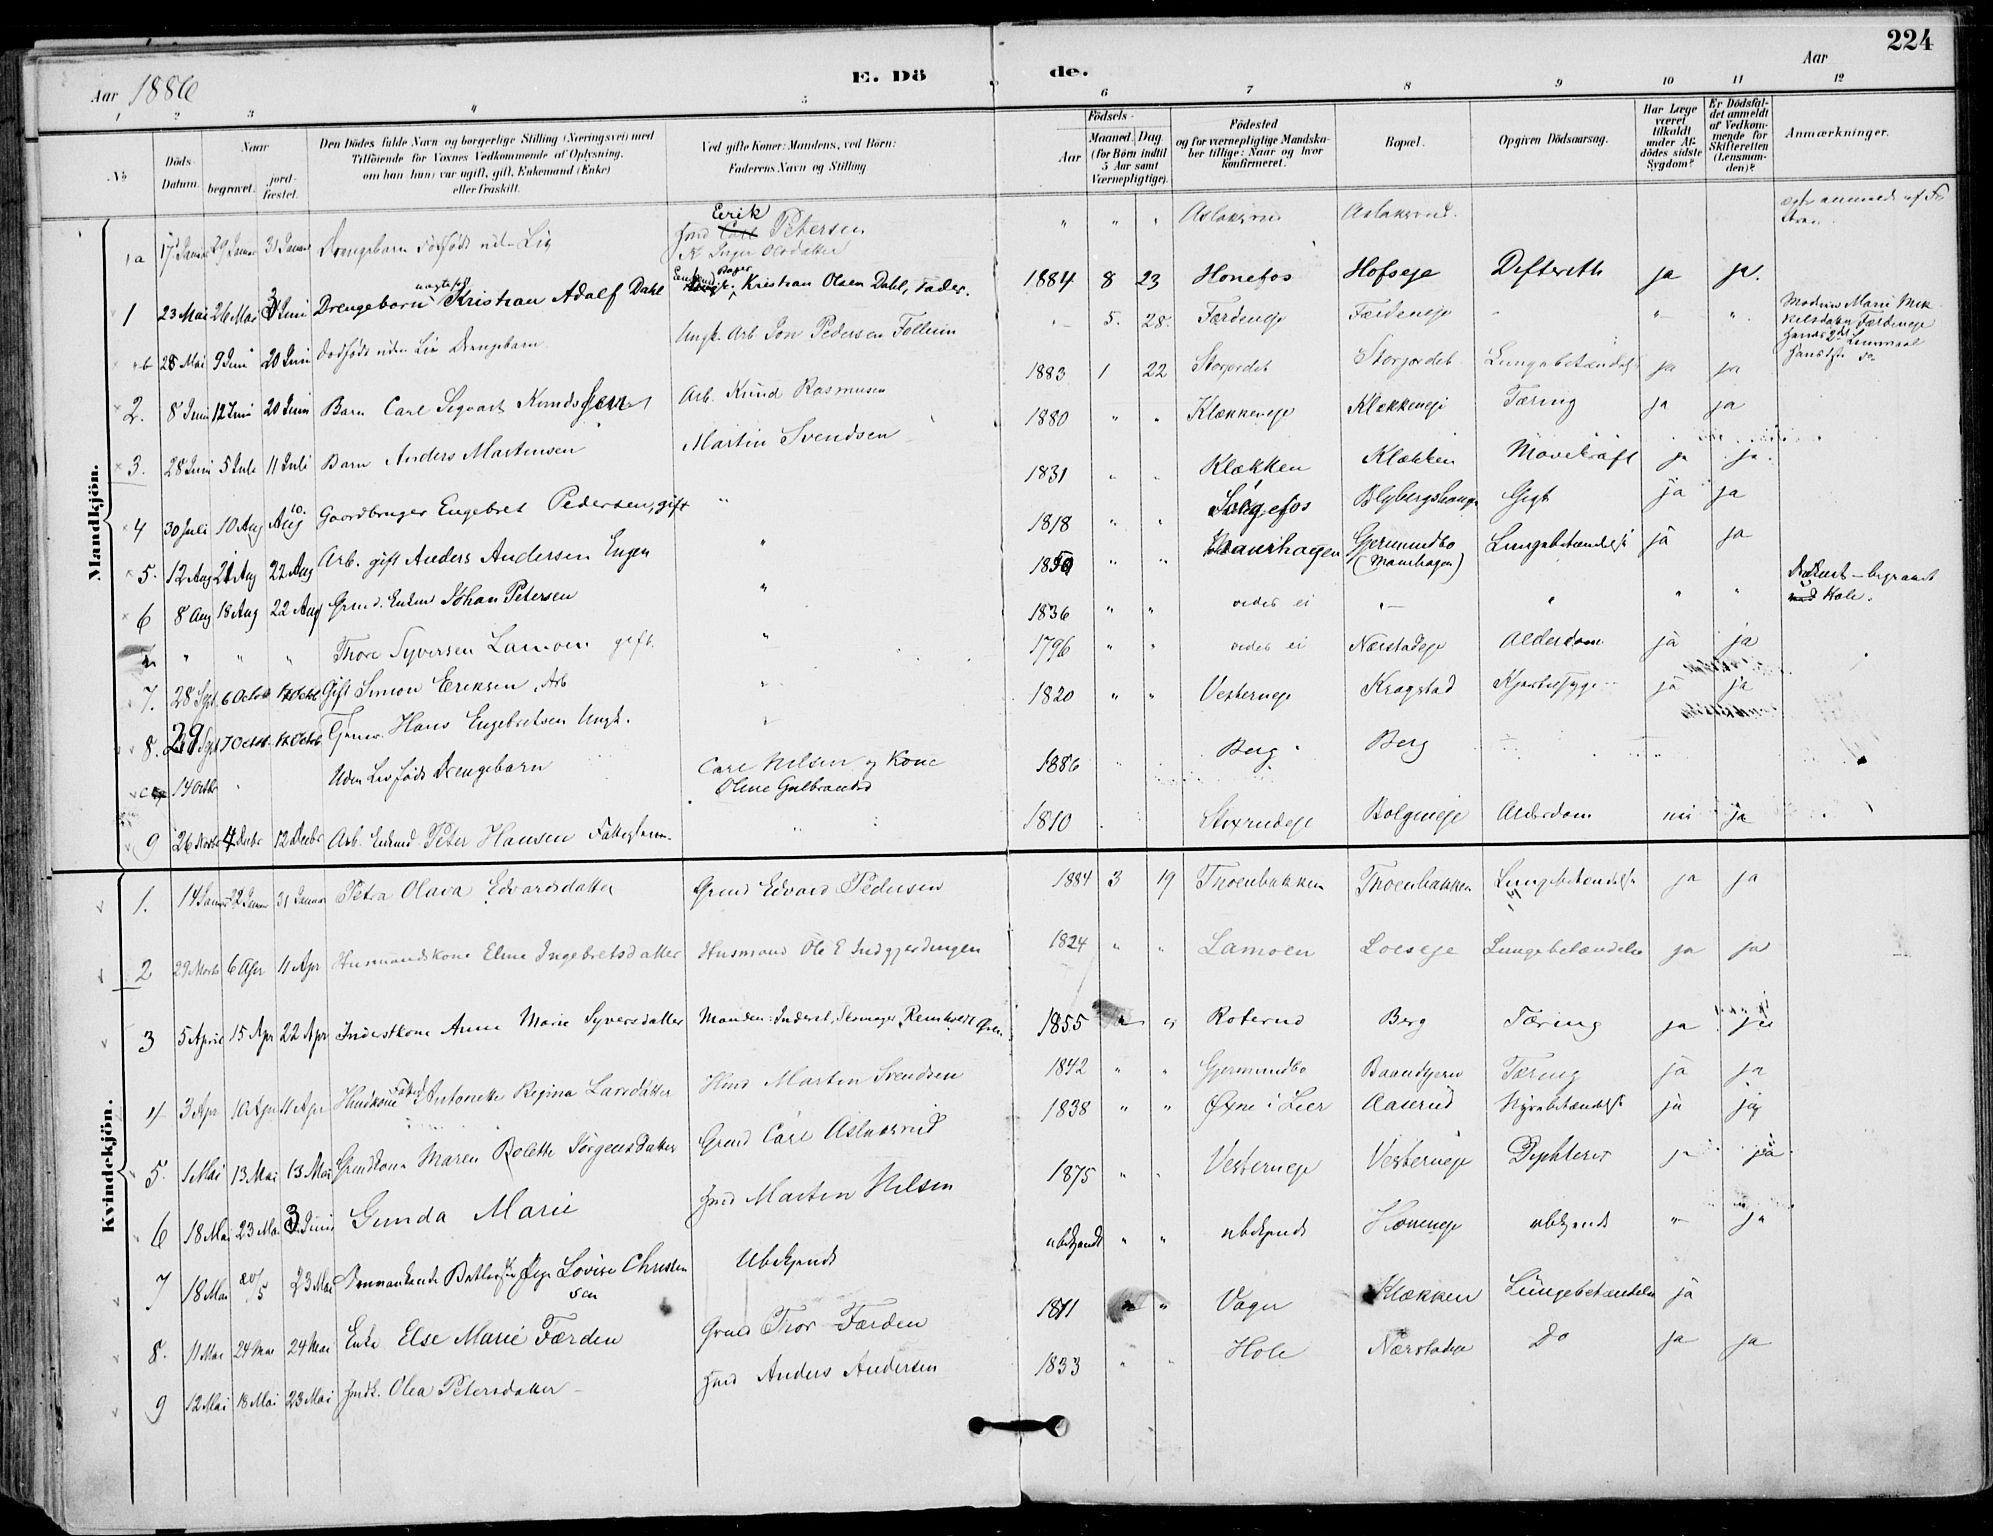 224
Aar 1886
E. Dö de.
Aar
1 2 3 4 5 6 7 8 9 10 11 12
No
Döds-Datum.
Naar
begravet.
jord-fæstet.
Den Dödes fulde Navn og borgerlige Stilling (Næringsvei) med
Tilföiende for Voxnes Vedkommende af Oplysning,
om han (hun) var ugift, gift, Enkemand (Enke)
eller fraskilt.
Ved gifte Koner: Mandens, ved Börn:
Faderens Navn og Stilling
Födsels-
Aar
Maaned. Dag.
(for Börn indtil
5 Aar samt
Værnepligtige).
Födested
og for værnepligtige Mandska-
ber tillige: Naar og hvor
konfirmeret.
Bopæl.
Opgiven Dödsaarsag.
Har Læge
været
tilkaldt
under Af-
dödes sidste
Sygdom?
Er Dödsfal-
det anmeldt
af Vedkom-
mende for
Skifteretten
(Lensman-
den)?
Anmærkninger.
Mandkjön.
1a 17 Januar 29 Januar 31 Januar Drengebarn dödfödt uden Liv Erik Petersen K. Inger Olsdatter " " " Aslaksrud Aslaksrud.
1 23 Mai 26 Mai 3 Juni Drengebarn uægtefød Kristian Adolf Dahl Bager Kristian Olsen Dahl, Fader. 1884 8 23 Honefos Hofseje Difterith ja ja.
b 28 Mai 9 Juni 20 Juni dødfödt uden Liv Drengebarn Ungk. Arb. Jon Pedersen Follum 5. 28. Færdeneje Færdeneje Moderen Marie Færdeneje
2. 8 Juni 12 Juni 20 Juni Barn Carl Sigvart Knudsen Arb. Knud Rasmusen 1883 1 22 Storjordet Storjordet Lungebetændelse ja ja
3. 28 Juni 5 Juli 11 Juli Barn Anders Martinsen Martin Svendsen 1880 " " Klækkeneje Klækkeneje Tæring ja ja
4 30 Juli 10 Aug 10. Aug Gaardbruger Engebret Pedersen, gift " 1831 " " Klækken Klækken Mavekræft ja ja.
5. 12 Aug 21 Aug 22 Aug Arb. gift Anders Andersen Engen " 1818 " " Gigt ja ja
6 8 Aug 18 Aug 22 Aug Johan Petersen " 1850 " " Gjermundbo Lungebetændelse ja ja
" " " Thore Syversen Lamoen gift. " 1836 " " vides ei " " " " begravet Hole.
7. 28 Sept 6 Octob 17 Octob Gift Simon Eriksen, Arb " 1796 " " vides ei Nærstadeje Alderdom ja ja
8. 29 Sept 7 Octob Hans Engebretsen Ungk. " 1820 " " Vesterneje Kragstad ja ja
c 14 Octbr Uden Liv födt Drengebarn Carl Nilsen og Kone Oline Gulbrandsd 1886 Berg Berg
9 26 Novbr 4 Decbr 12 Decbr Arb. Enkmd Peter Hansen Fattiglem. " 1810 Bolgeneje Alderdom nei ja
Kvindekjön.
1. 14 Januar 22 Januar 31 Januar Petra Olava Edvardsdatter Grmd Edvard Pedersen 1884 3 19 Thoenbakken Thoenbakken Lungebetændelse ja ja
2 29 Marts 6 Apr 11 Apr Husmandskone Eline Ingebretsdatter Husmand Ole E Indgjerdingen 1824 " " Lamoen Loeseje Lungebetændelse ja ja
3 5 April 15 Apr 22 Apr Inderstkone Anne Marie Syversdatter Manden: Inderst, 1855 " " Roterud Berg Tæring ja ja
4 3 Apr 10 Apr 11 Apr Antonette Regina Larsdatter Hmd Martin Svendsen 1842 " " Gjermundbo Tæring ja ja
5. 1 Mai 13 Mai 13 Mai Grmdkone Maren Bolette Jörgensdatter Grmd Carl Aslaksrud 1838 " " Øxne i Lier Aaserud Nyrebetændelse ja ja
6 18 Mai 23 Mai 3 Juni Gunda Marie Martin Nilsen 1875 " " Vesterneje Vesterneje Dyphterit ja ja
7 18 Mai 20/5 23 Mai Lovise Christensen Ubekjendt ubekjendt " " ubekjendt Höneneje ubekjendt " ja
8. 11 Mai 24 Mai 24 Mai Enke Else Marie Færden Grmd Thor Færden 1811 " " Vager Klækken Lungebetændelse ja
9 12 Mai 18 Mai 23 Mai Olea Petersdatter Anders Andersen 1833 " " Hole Nærstadeje Do ja ja